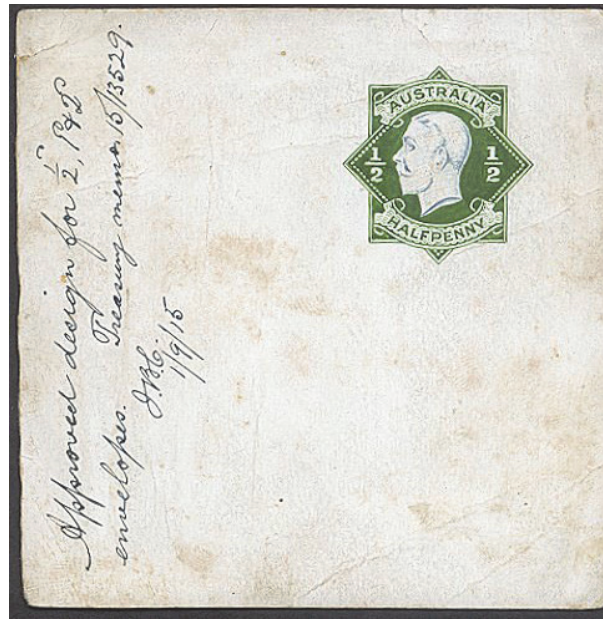 Approved design for ½, 1d & 2d
envelopes. Treasury memo 15/13529.
J.B.C.
1/9/15
AUSTRALIA
½ ½
HALFPENNY